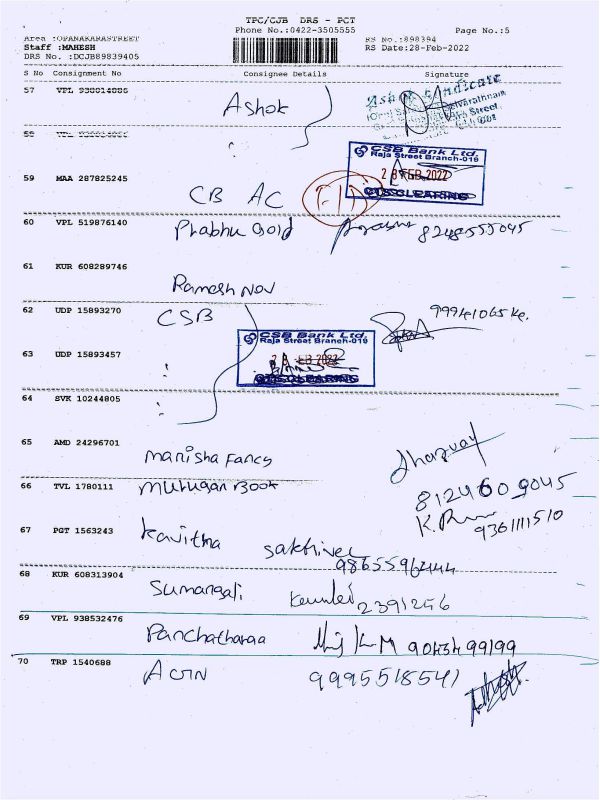 TPC/CJB DRS - PCT
Phone No.:0422-3505555 Page No.:5
Area :OPANAKARASTREET RS No.:898394
Staff :MAHESH RS Date:28-Feb-2022
DRS No. :DCJB89839405
S No Consignment No Consignee Details Signature
57 VPL 938614086 Ashok
58 VPL
59 MAA 287825245 CB AC
CSB Bank Ltd.
Raja Street Branch-016
28 FEB 2022
CTS CLEARING
60 VPL 519876140 Prabhu Gold 8248555045
61 KUR 608289746 Ramesh Nov
62 UDP 15893270 CSB
CSB Bank Ltd.
Raja Street Branch-016
FEB 2022
CTS CLEARING
63 UDP 15893457
64 SVK 10244805
65 AMD 24296701 Manisha Fancy
66 TVL 1780111 Murugan Book 8124609045
67 PGT 1563243 Kavitha Sakthivel 9361111510
68 KUR 608313904 Sumangali 2391256
69 VPL 938532476 9045499199
70 TRP 1540688 9995518541